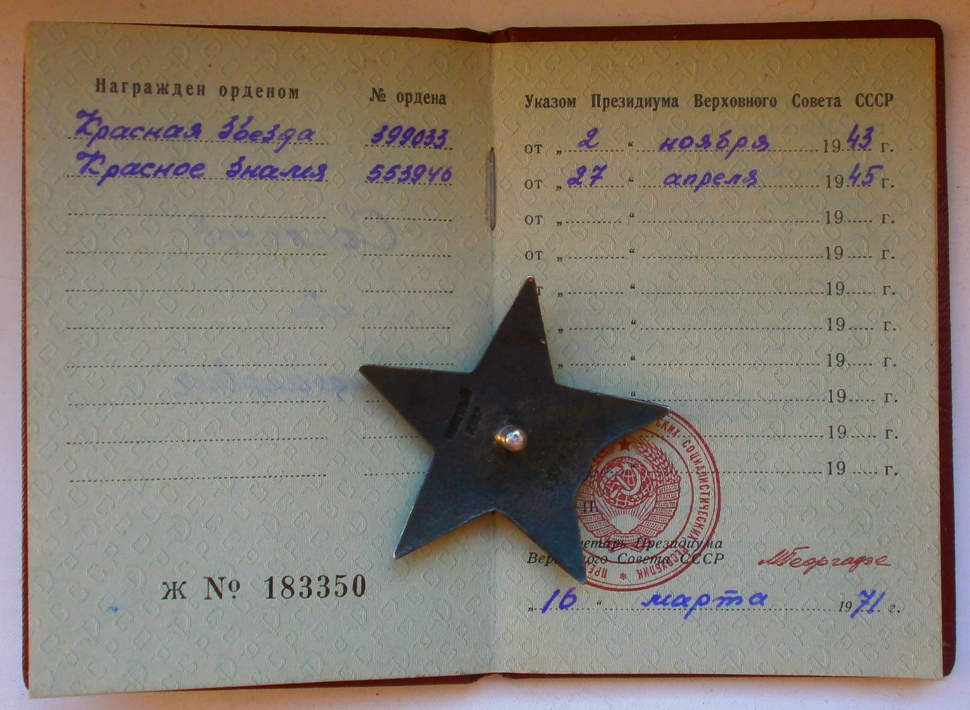 Награжден орденом № ордена
Красная Звезда 399033
Красное Знамя 553946
Ж № 183350
Указом Президиума Верховного Совета СССР
от „ 2 “ ноября 1943 г.
от „ 27 “ апреля 1945 г.
от „ “ 19 г.
от „ “ 19 г.
от „ “ 19 г.
„ “ 19 г.
“ 19 г.
“ 19 г.
19 г.
“ 19 г.
Президиума
Совета СССР
МГеоргадзе
„ 16 “ марта 1971 г.